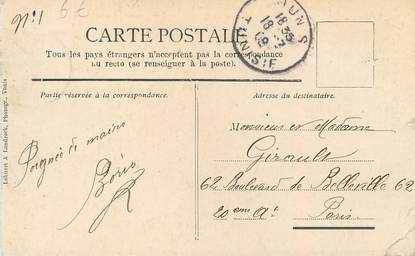 N°1
67
CARTE POSTALE
Tous les pays étrangers n'acceptent pas la correspondance
au recto (se renseigner à la poste).
TUNIS
18 35
18 -2
TUNISIE
Partie réservée à la correspondance.
Adresse du destinataire.
Lehnert & Landrock, Photogr., Tunis
Poignée de mains
Monsieur et Madame
Girault
62 Boulevard de Belleville 62
20eme Art
Paris.